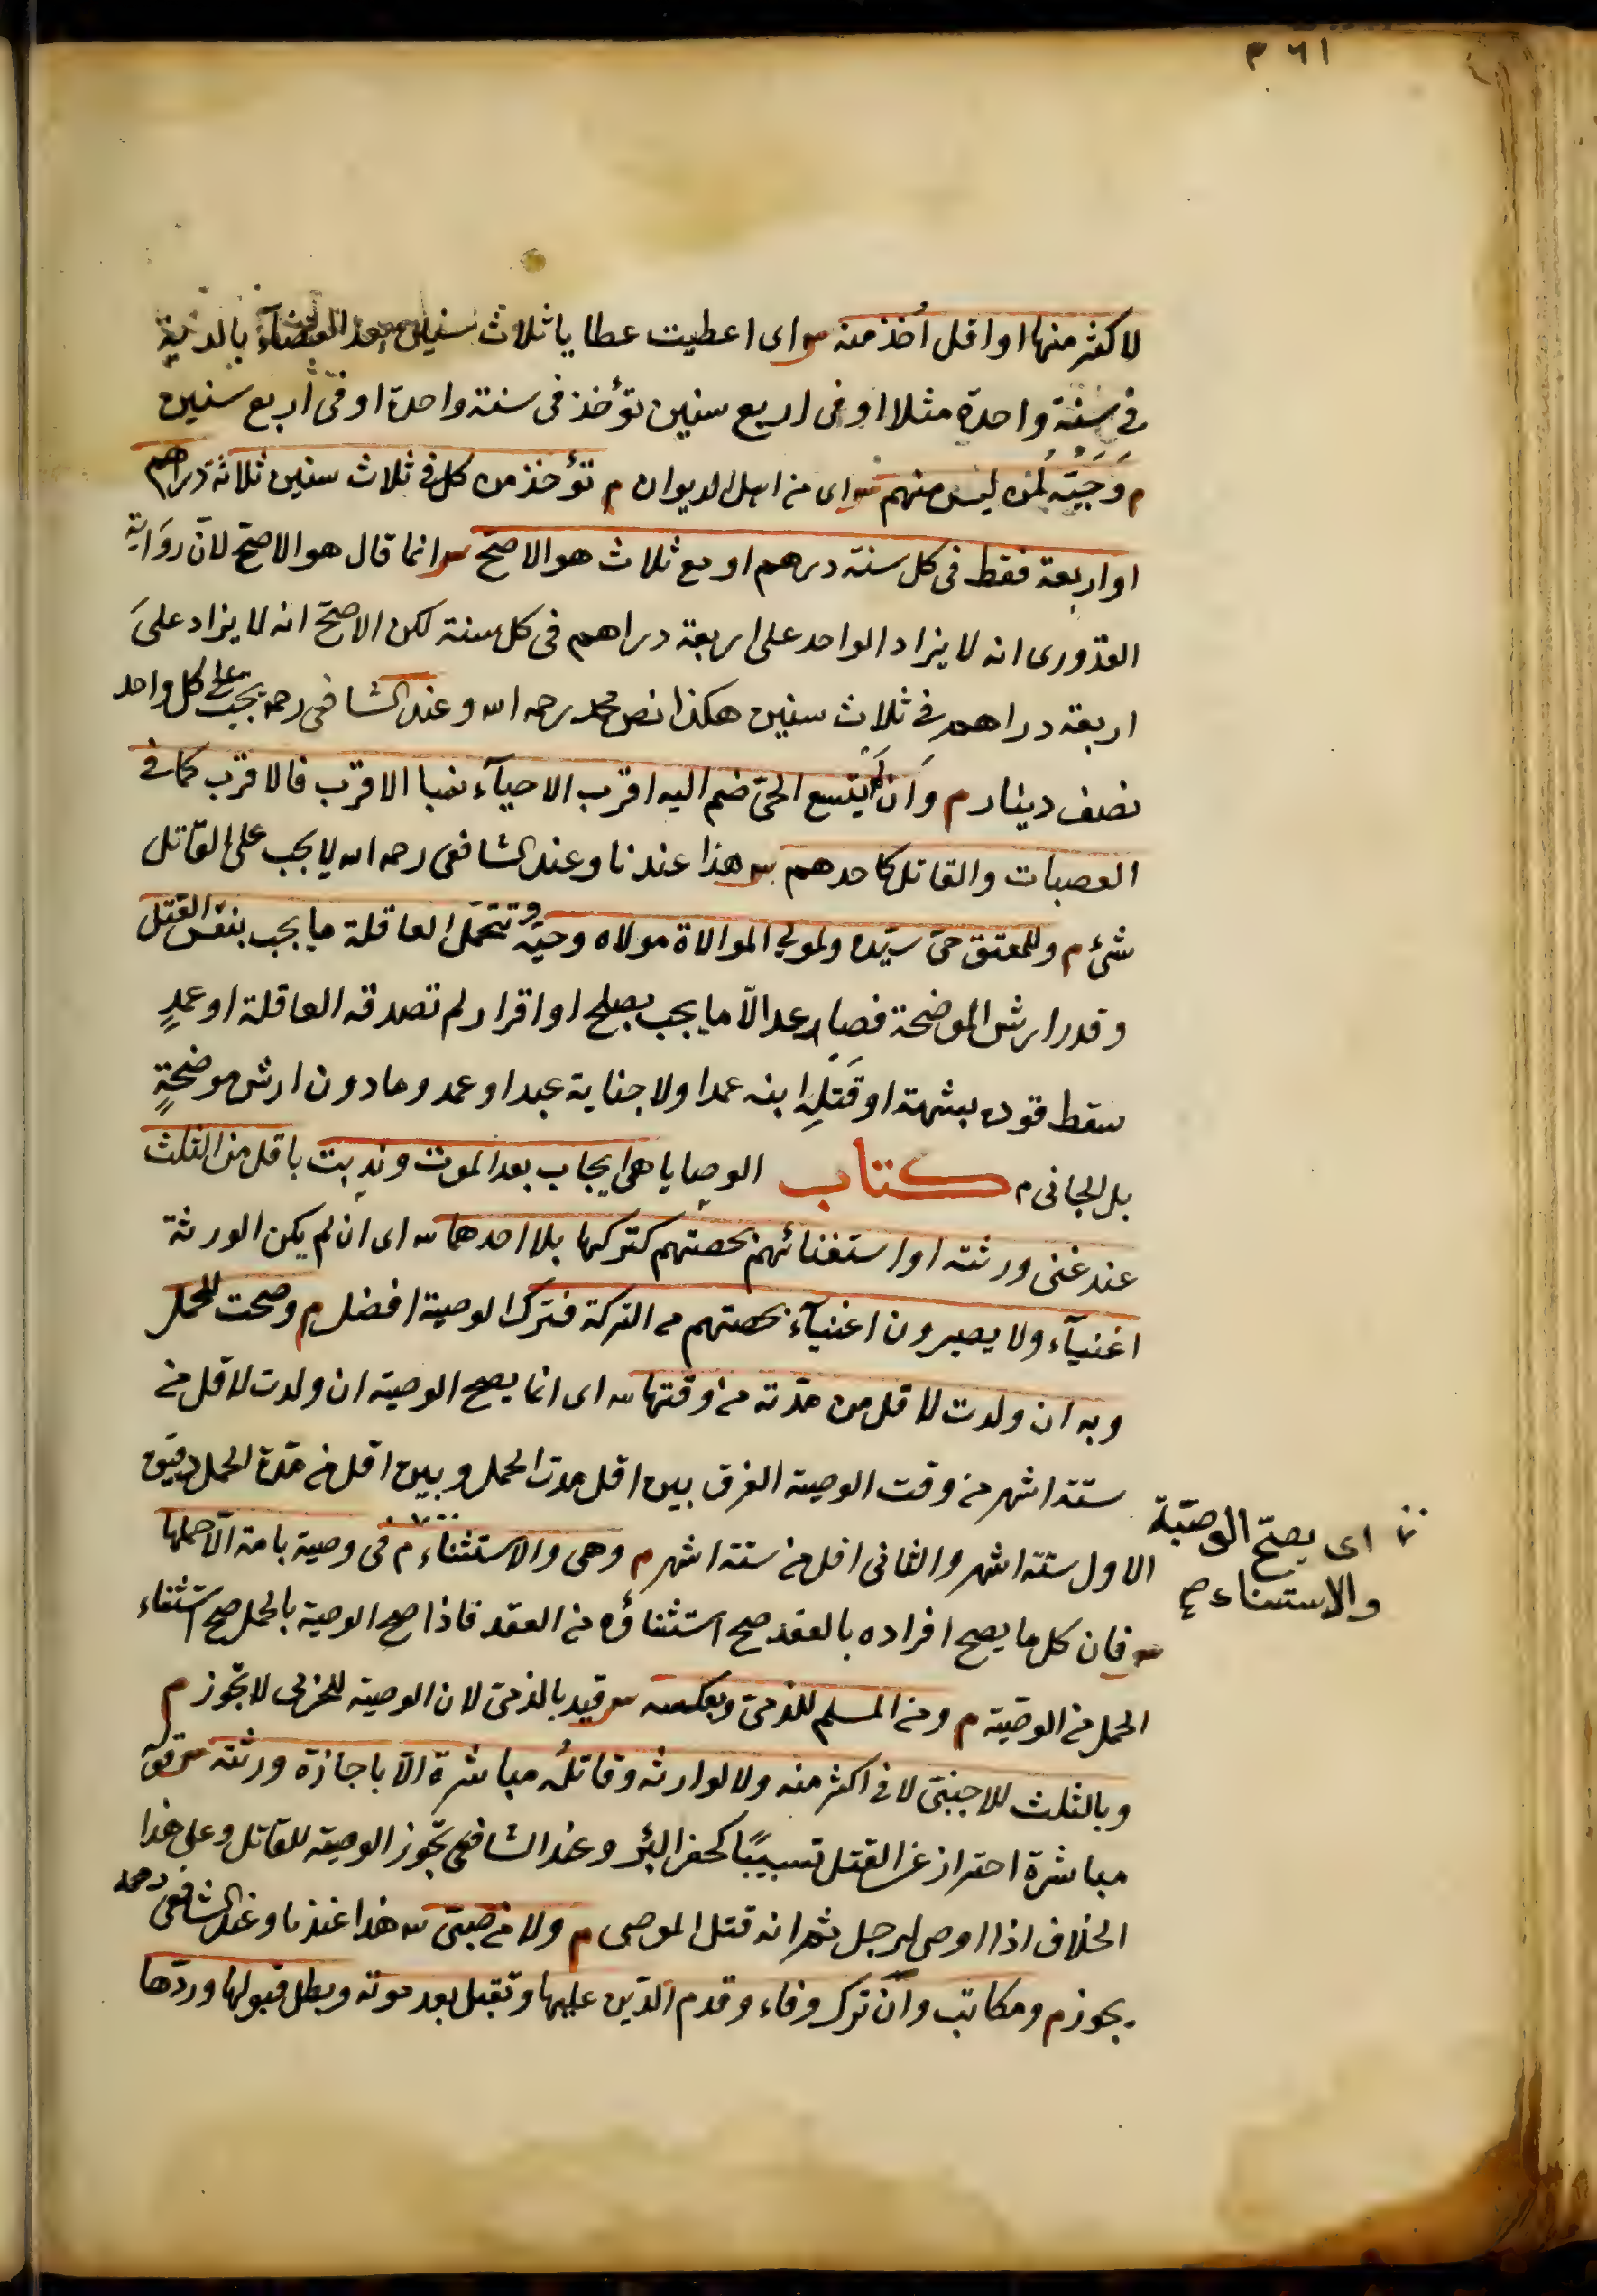 ٣٦١
لاكثر منها او اقل اُخذ منه س اى اعطيت عطايا ثلاث سنين بعد القضآء بالدية
فى سنة واحدة مثلا او فى اربع سنين تؤخذ فى سنة واحدة او فى اربع سنين
م وَحَيّه لمن ليس منهم س اى من اهل الديوان م تؤخذ من كل فى ثلاث سنين ثلاثة دراهم
او اربعة فقط فى كل سنة درهم او مع ثلاث هو الاصح س انما قال هو الاصح لان رواية
القدورى انه لا يزاد الواحد على اربعة دراهم فى كل سنة لكن الاصح انه لا يزاد على
اربعة دراهم فى ثلاث سنين هكذا نص محمد رحمه الله وعند الشافعى رحمه يجب على كل واحد
نصف دينار م وان لم يتسع الحى ضم اليه اقرب الاحيآء نسبا الاقرب فالاقرب كما فى
العصبات والقاتل كاحدهم س هذا عندنا وعند الشافعى رحمه الله لا يجب على القاتل
شئ م وللمعتق حى سيّده ولمولى الموالاة مولاه وحيّه وتتحمل العاقلة ما يجب بنفس القتل
وقدر ارش الموضحة فصاعدا الاّ ما يجب بصلح او اقرار لم تصدقه العاقلة او عمدٍ
سقط قوده بشبهة او قَتلِه ابنه عمدا ولا جناية عبد او عمد وما دون ارش موضحةٍ
بل الجانى م كتاب الوصايا هى ايجاب بعد الموت وندبت باقل من الثلث
عند غنى ورثته او استغنائهم بحصتهم كتركها بلا احدهما س اى ان لم يكن الورثة
اغنيآء ولا يصيرون اغنيآء بحصتهم من التركة فترك الوصية افضل م وصحت للحمل
وبه ان ولدت لاقل من مدّته من وقتها س اى انما يصح الوصية ان ولدت لاقل من
ستة اشهر من وقت الوصية الفرق بين اقل مدة الحمل وبين اقل من مدة الحمل دقيق
الاول ستة اشهر والثانى اقل من ستة اشهر م وهى والاستثناء م فى وصية بامة الاّ حملها
س فان كل ما يصح افراده بالعقد صح استثناؤه من العقد فاذا صح الوصية بالحمل صح استثناء
الحمل من الوصية م ومن المسلم للذمى وبعكسه س قيد بالذمى لان الوصية للحربى لا تجوز م
وبالثلث للاجنبى لا فى اكثر منه ولا لوارثه وقاتلُه مباشرة الاّ باجازة ورثته س قوله
مباشرة احتراز عن القتل تسبيبًا كحفر البئر وعند الشافعى تجوز الوصية للقاتل وعلى هذا
الخلاف اذا اوصى لرجل ثم انه قتل الموصى م ولا من صبىّ س هذا عندنا وعند الشافعى رحمه
يجوز م ومكاتب وان ترك وفاء وقدم الدّين عليها وتقبل بعد موته وبطل قبولها وردّها
اى يصحّ الوصيّة
والاستثناء صح